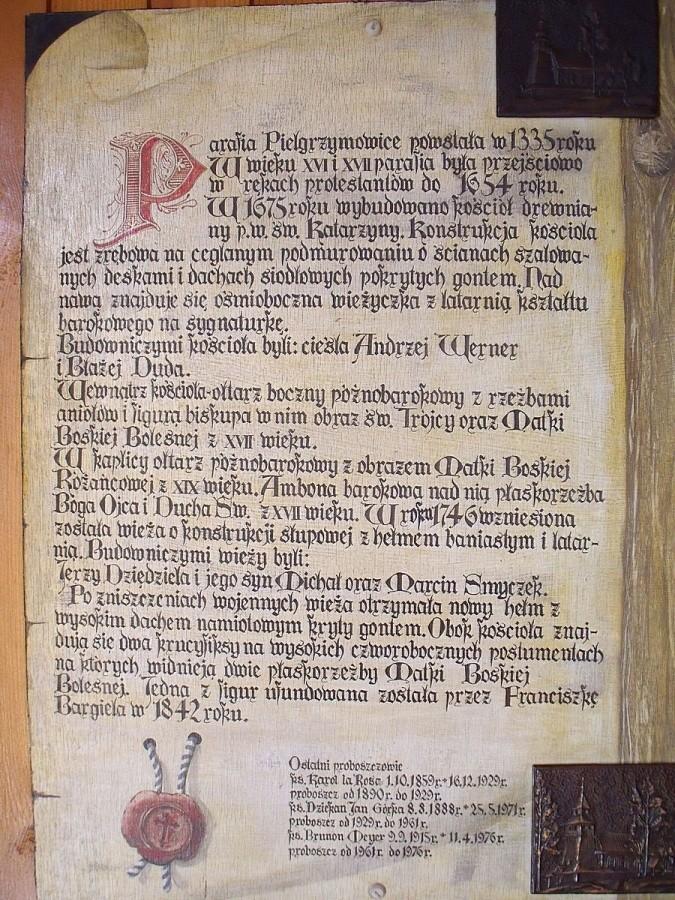 Parafia Pielgrzymowice powstała w 1335 roku
W wieku XVI i XVII parafia była przejściowo
w rękach protestantów do 1654 roku.
W 1675 roku wybudowano kościół drewnia-
ny p.w. św. Katarzyny. Konstrukcja kościoła
jest zrębowa na ceglanym podmurowaniu o ścianach szalowa-
nych deskami i dachach siodłowych pokrytych gontem. Nad
nawą znajduje się ośmioboczna wieżyczka z latarnią kształtu
barokowego na sygnaturkę.
Budowniczymi kościoła byli: cieśla Andrzej Werner
i Błażej Duda.
Wewnątrz kościoła-ołtarz boczny późnobarokowy z rzeźbami
aniołów i figurą biskupa w nim obraz św. Trójcy oraz Matki
Boskiej Bolesnej z XVII wieku.
W kaplicy ołtarz późnobarokowy z obrazem Matki Boskiej
Różańcowej z XIX wieku. Ambona barokowa nad nią płaskorzeźba
Boga Ojca i Ducha Św. z XVII wieku. W roku 1746 wzniesiona
została wieża o konstrukcji słupowej z hełmem baniastym i latar-
nią. Budowniczymi wieży byli:
Jerzy Dziędziela i jego syn Michał oraz Marcin Smyczek.
Po zniszczeniach wojennych wieża otrzymała nowy hełm z
wysokim dachem namiotowym kryty gontem. Obok kościoła znaj-
dują się dwa krucyfiksy na wysokich czworobocznych postumentach
na których widnieją dwie płaskorzeźby Matki Boskiej
Bolesnej. Jedna z figur ufundowana została przez Franciszkę
Bargieła w 1842 roku.
Ostatni proboszczowie
ks. Karol la Rose 1.10.1859r.+16.12.1929r.
proboszcz od 1890r. do 1929r.
ks. Dziekan Jan Górka 8.8.1888r.+ 25.5.1971r.
proboszcz od 1929r. do 1961r.
ks. Brunon Meyer 9.9.1915r.+ 11.4.1976r.
proboszcz od 1961r. do 1976r.